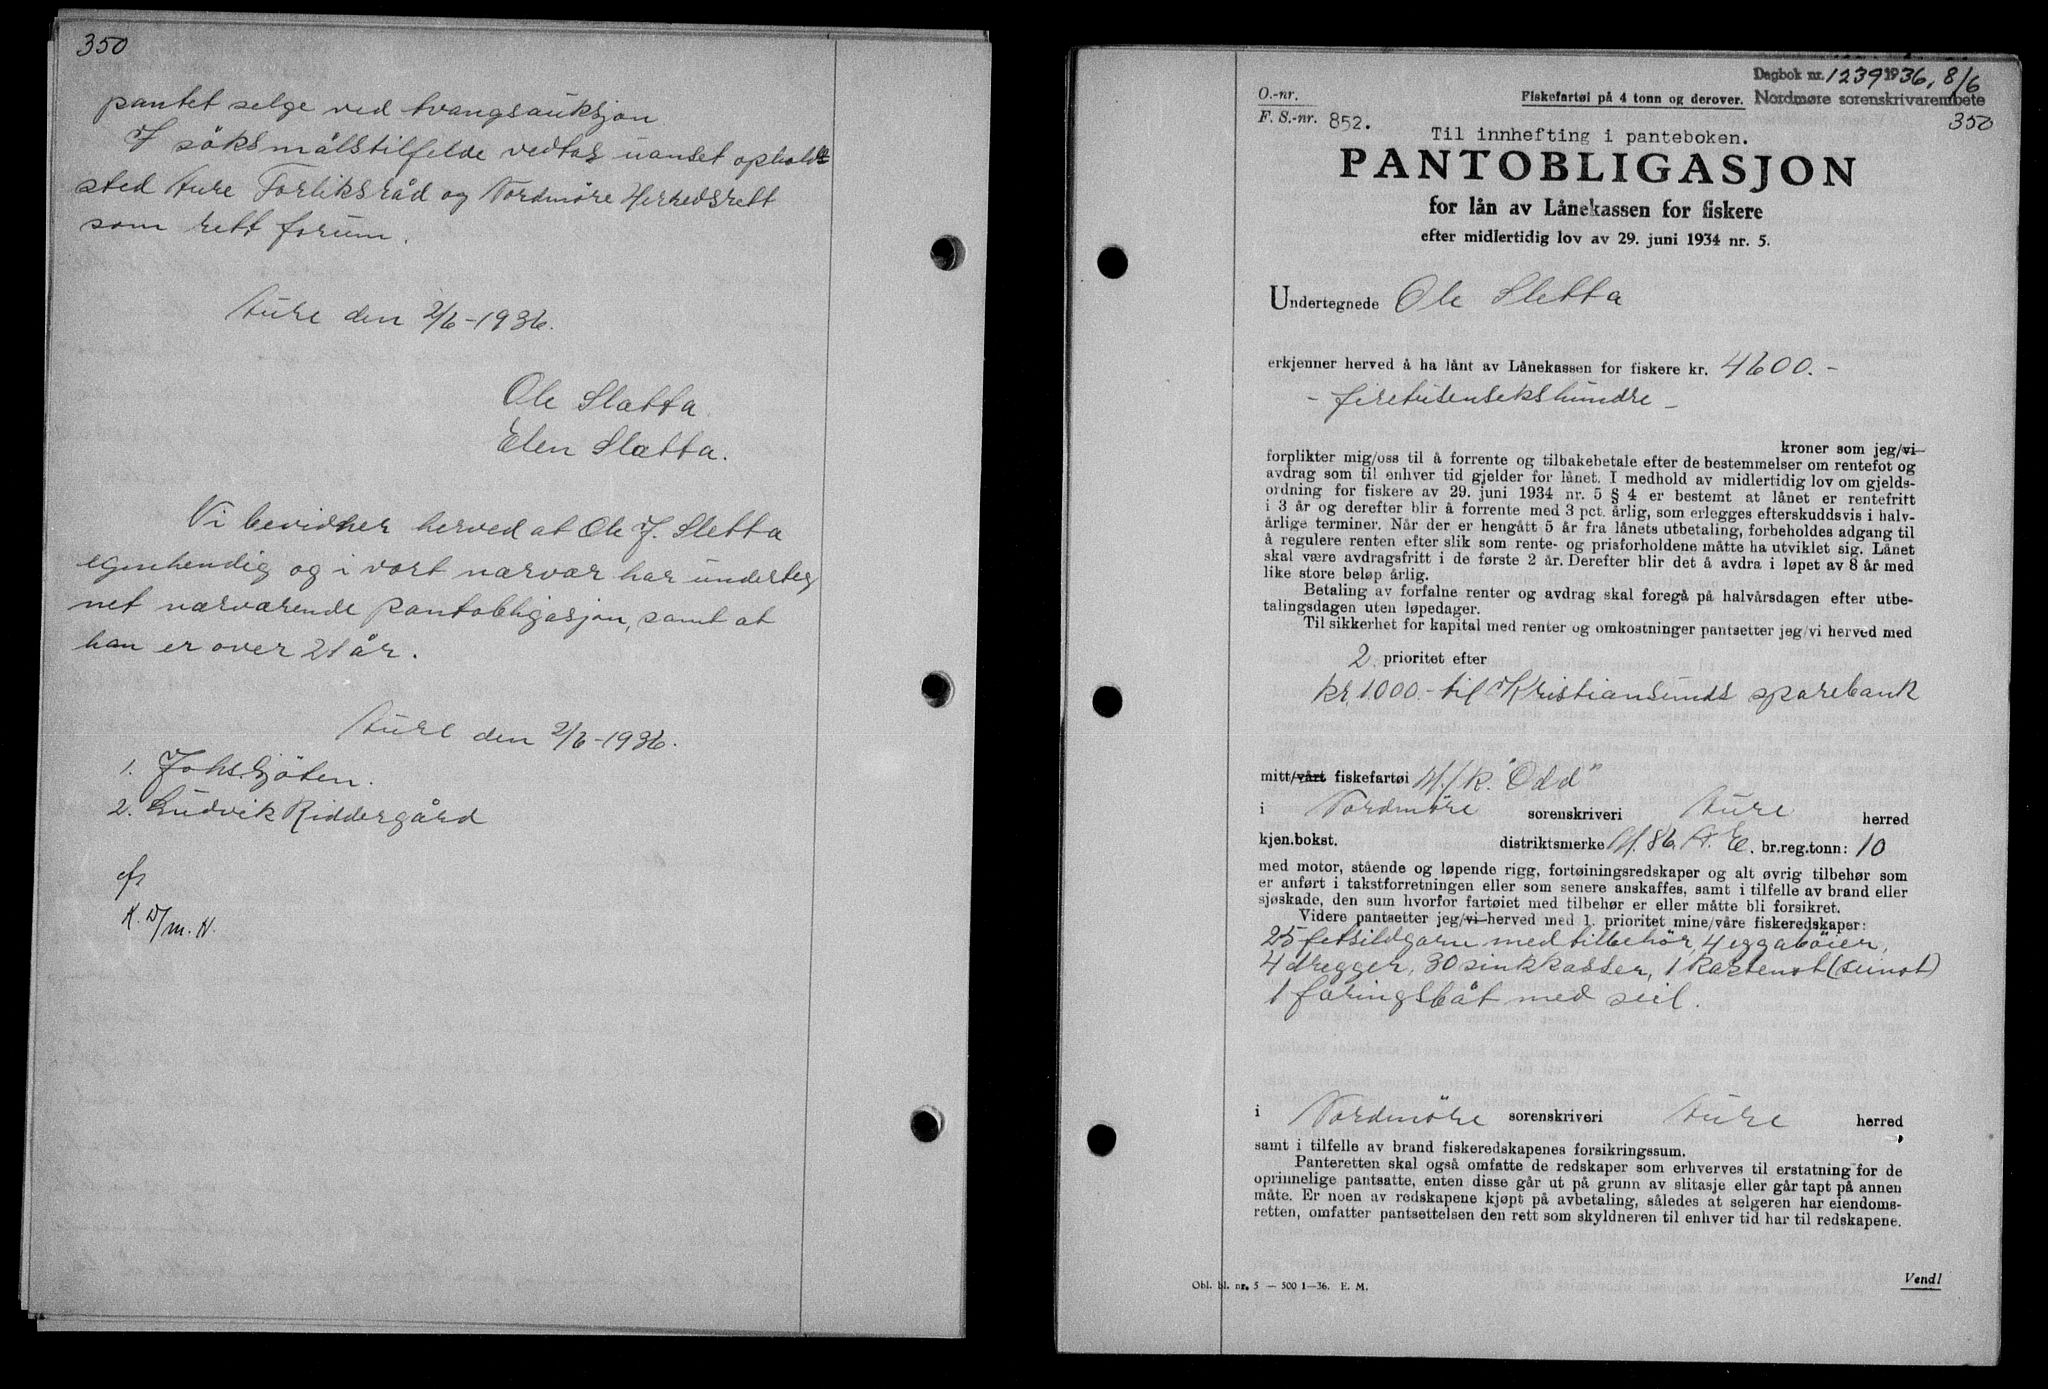 350
pantet selge ved tvangsauksjon
I søksmålstilfelde vedtas uanset opholds
sted Aure Forliksråd og Nordmøre Herredsrett
som rett forum.
Aure den 2/6-1936.
Ole Sletta.
Elen Sletta.
Vi bevidner herved at Ole J. Sletta
egenhendig og i vort nærvær har underteg
net nærværende pantobligasjon, samt at
han er over 21 år.
Aure den 2/6-1936.
1. Johs. Gjøten.
2. Ludvik Riddergård
K. D/m. N.
Dagbok nr. 1239 1936, 8/6
O.-nr.
Fiskefartøi på 4 tonn og derover. Nordmøre sorenskrivarembete
F. S.-nr. 852.
350
Til innhefting i panteboken.
PANTOBLIGASJON
for lån av Lånekassen for fiskere
efter midlertidig lov av 29. juni 1934 nr. 5.
Undertegnede Ole Sletta
erkjenner herved å ha lånt av Lånekassen for fiskere kr. 4600.-
- firetusensekshundre -
kroner som jeg/vi
forplikter mig/oss til å forrente og tilbakebetale efter de bestemmelser om rentefot og
avdrag som til enhver tid gjelder for lånet. I medhold av midlertidig lov om gjelds-
ordning for fiskere av 29. juni 1934 nr. 5 § 4 er bestemt at lånet er rentefritt
i 3 år og derefter blir å forrente med 3 pct. årlig, som erlegges efterskuddsvis i halv-
årlige terminer. Når der er hengått 5 år fra lånets utbetaling, forbeholdes adgang til
å regulere renten efter slik som rente- og prisforholdene måtte ha utviklet sig. Lånet
skal være avdragsfritt i de første 2 år. Derefter blir det å avdra i løpet av 8 år med
like store beløp årlig.
Betaling av forfalne renter og avdrag skal foregå på halvårsdagen efter utbe-
talingsdagen uten løpedager.
Til sikkerhet for kapital med renter og omkostninger pantsetter jeg/vi herved med
2. prioritet efter
kr. 1000.- til Kristiansunds sparebank
mitt/vårt fiskefartøi M/k. "Odd"
i Nordmøre sorenskriveri Aure herred
kjen.bokst. distriktsmerke M. 86. A. E. br.reg.tonn: 10
med motor, stående og løpende rigg, fortøiningsredskaper og alt øvrig tilbehør som
er anført i takstforretningen eller som senere anskaffes, samt i tilfelle av brand eller
sjøskade, den sum hvorfor fartøiet med tilbehør er eller måtte bli forsikret.
Videre pantsetter jeg/vi herved med 1. prioritet mine/våre fiskeredskaper:
25 fetsildgarn med tilbehør, 4 eggabøier,
4 dregger, 30 sinkkasser, 1 kastenot (seinot)
1 færingsbåt med seil.
i Nordmøre sorenskriveri Aure herred
samt i tilfelle av brand fiskeredskapenes forsikringssum.
Panteretten skal også omfatte de redskaper som erhverves til erstatning for de
oprinnelige pantsatte, enten disse går ut på grunn av slitasje eller går tapt på annen
måte. Er noen av redskapene kjøpt på avbetaling, således at selgeren har eiendoms-
retten, omfatter pantsettelsen den rett som skyldneren til enhver tid har til redskapene.
Obl. bl. nr. 5 — 500 1—36. E. M.
Vend!